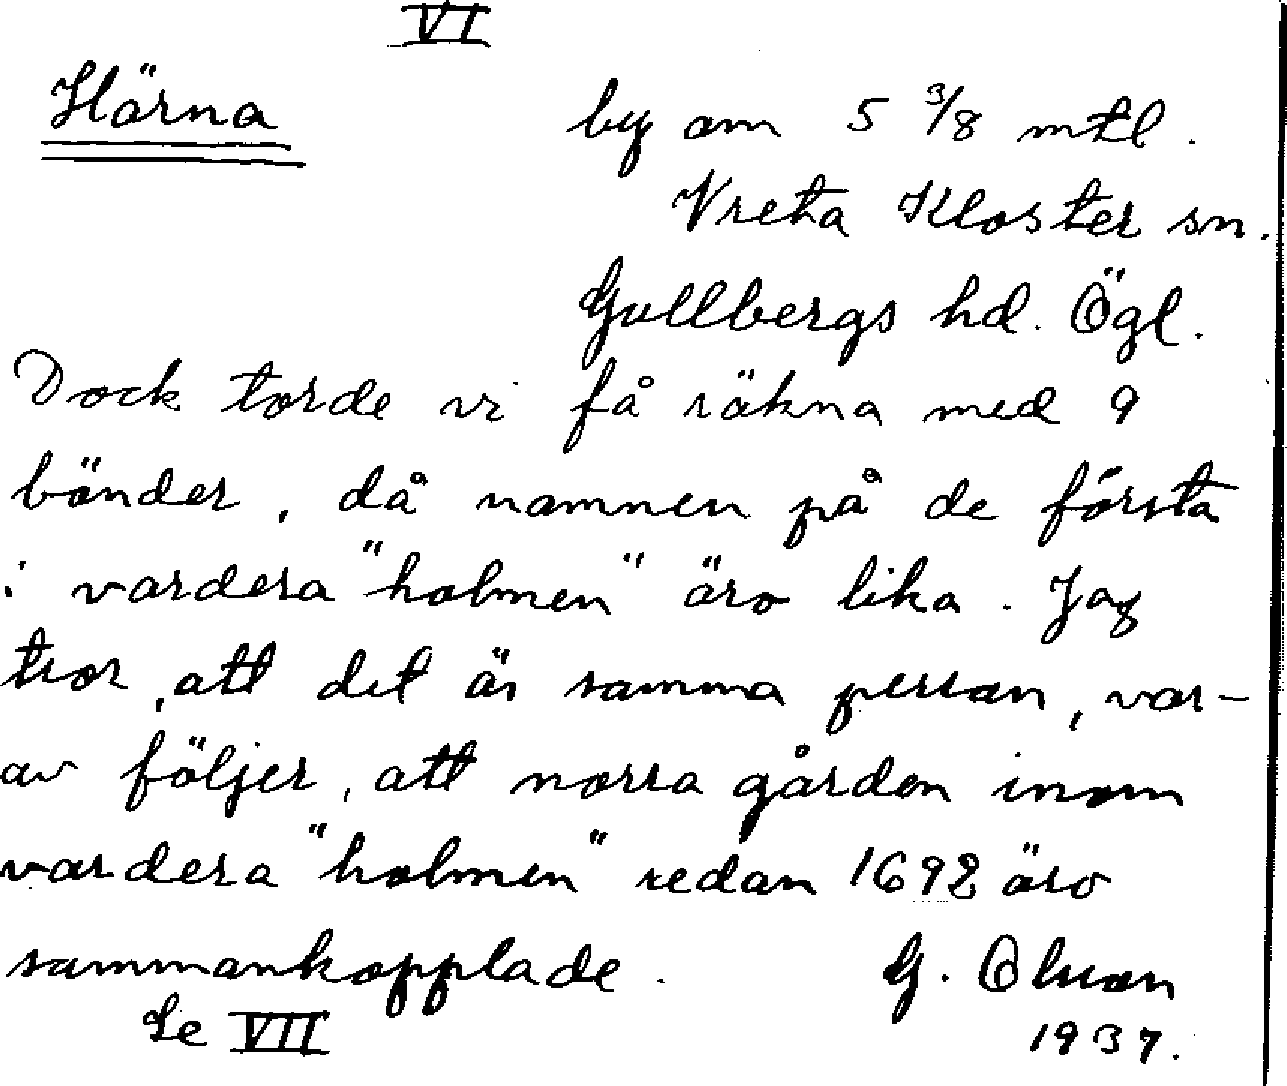 VI
Härna by om 5 3/8 mtl.
Vreta Kloster sn.
Gullbergs hd. Ögl.
Dock torde vi få räkna med 9
bönder, då namnen på de första
i vardera "holmen" äro lika. Jag
tror, att det är samma person, var-
av följer, att norra gården inom
vardera "holmen" redan 1692 äro
sammankopplade. G. Olson
Se VII 1937.